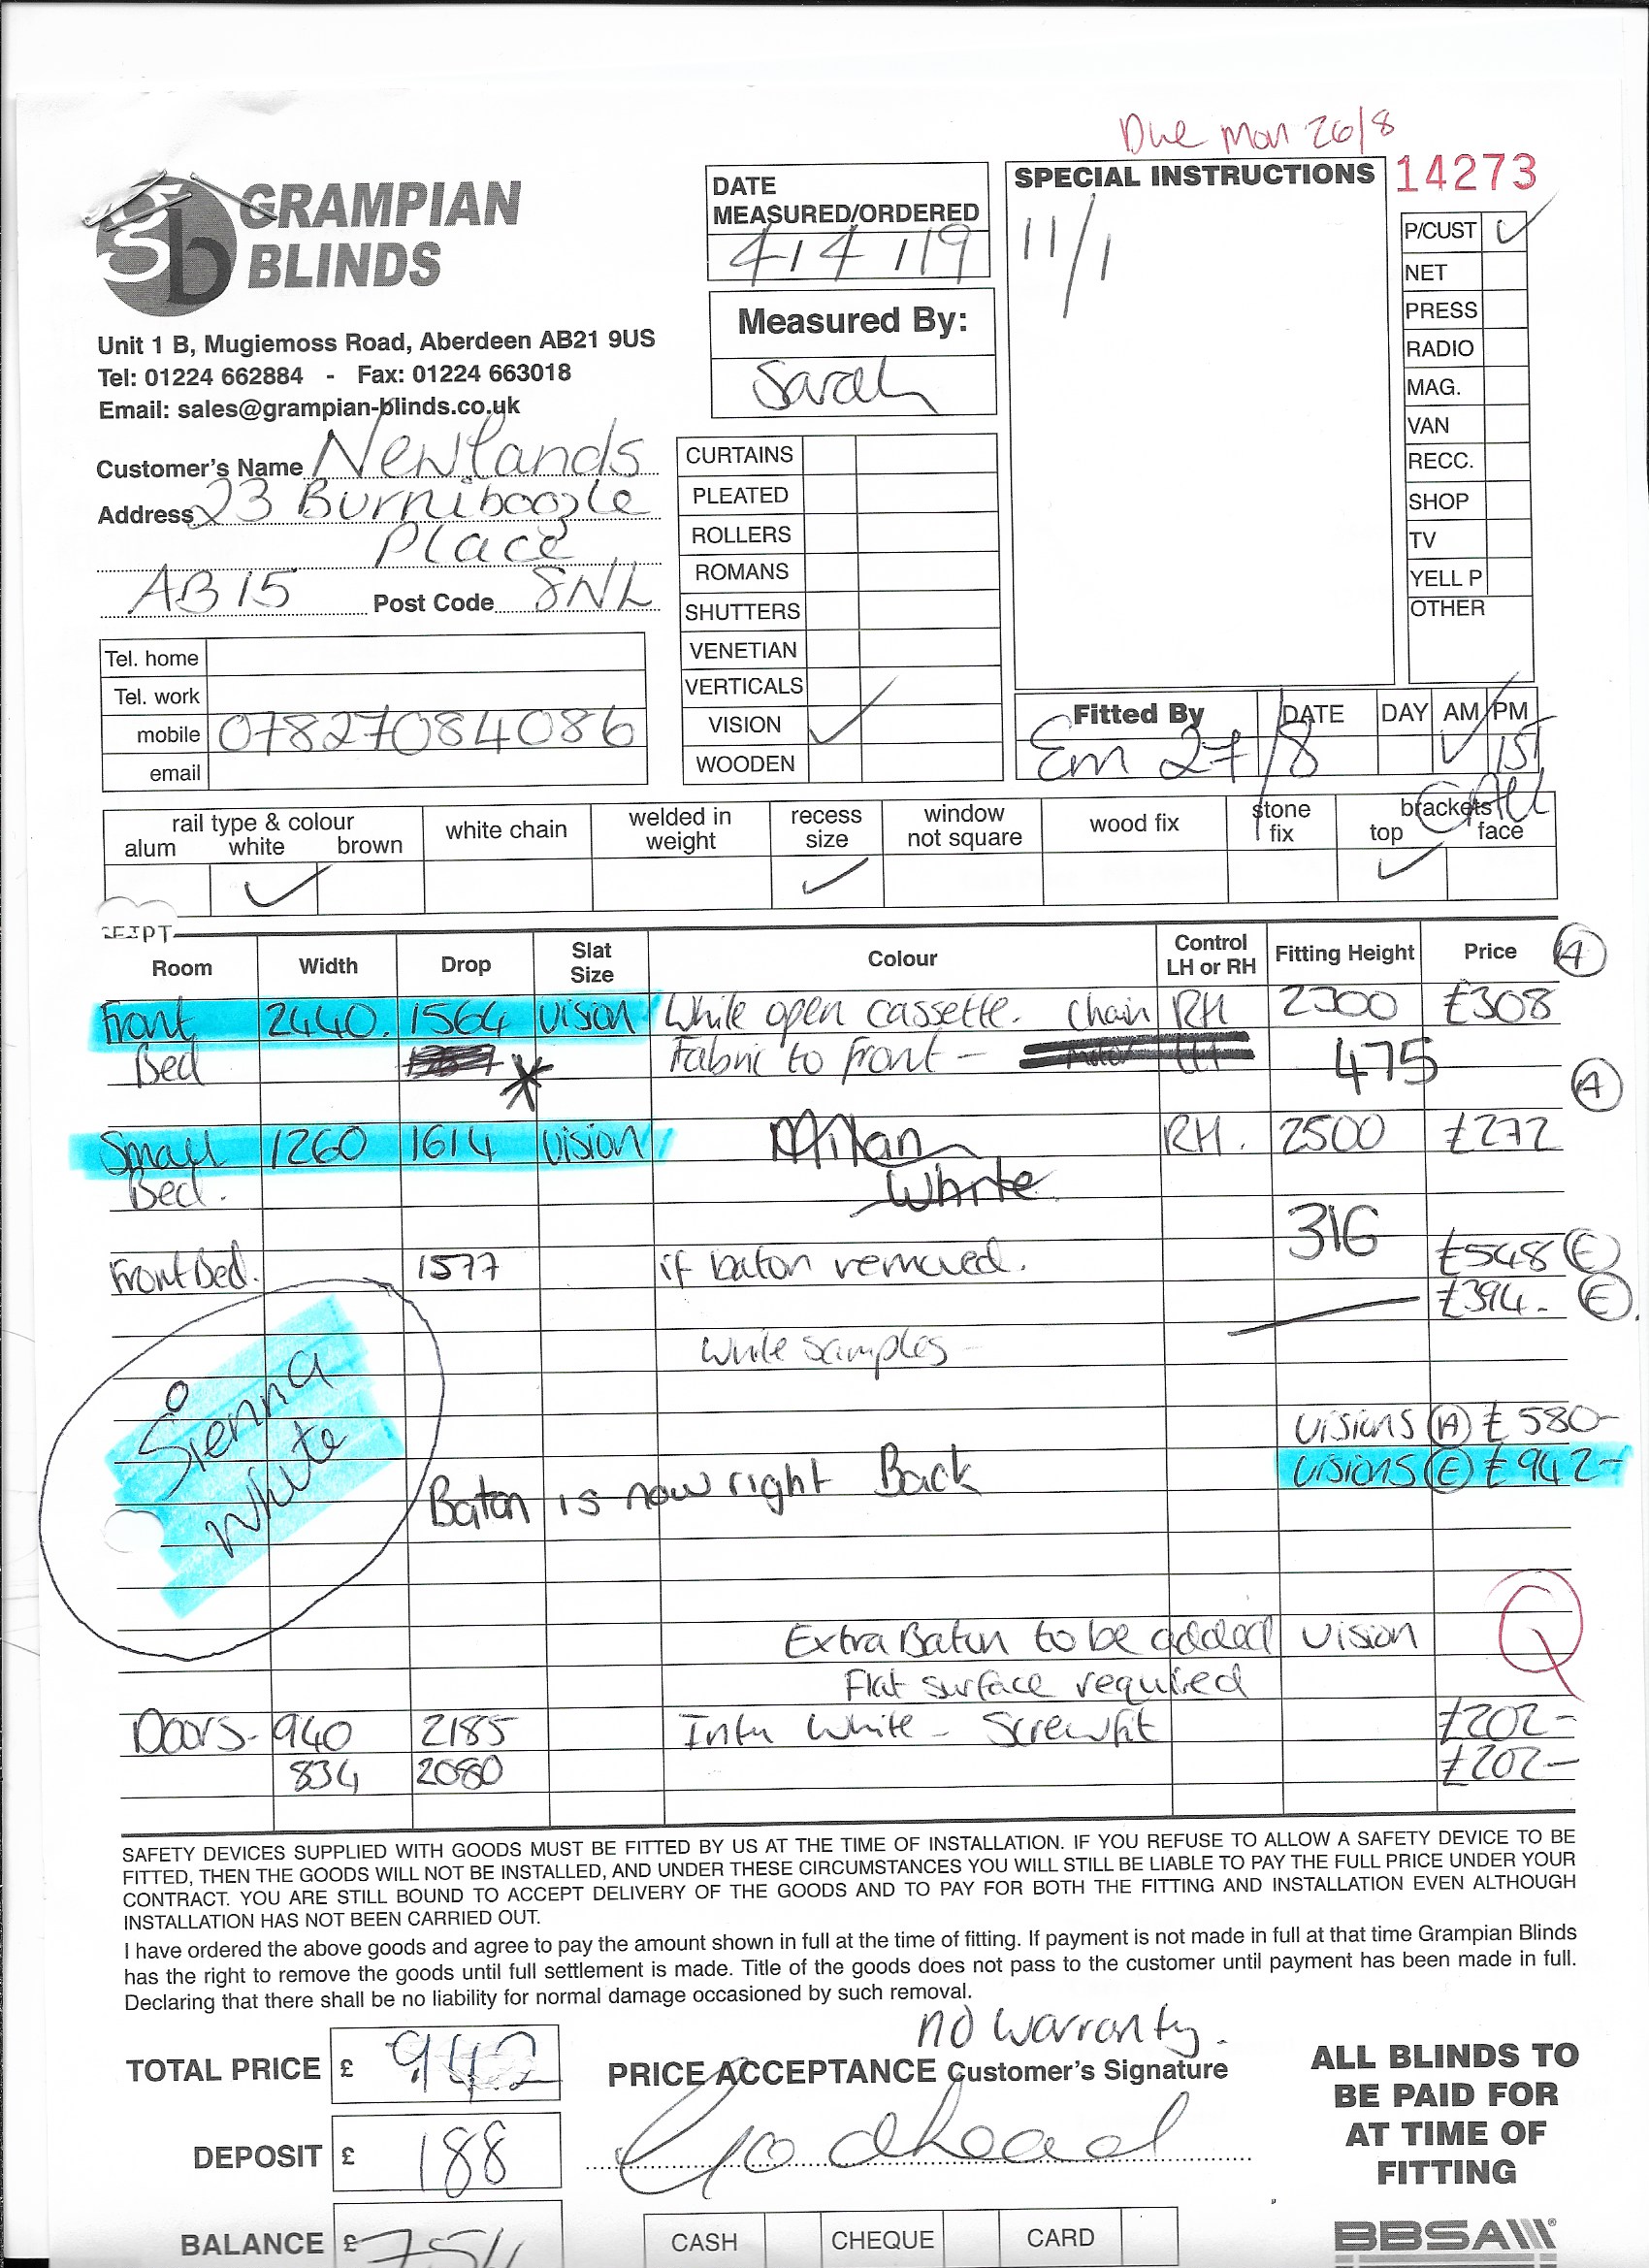 Due Mon 26/8
GRAMPIAN
BLINDS
Unit 1 B, Mugiemoss Road, Aberdeen AB21 9US
Tel: 01224 662884 - Fax: 01224 663018
Email: sales@grampian-blinds.co.uk
Customer's Name Newlands
Address 23 Burnieboozle
Place
AB15 Post Code 8NL
Tel. home
Tel. work
mobile 07827084086
email
DATE
MEASURED/ORDERED
4/4/19
Measured By:
Sarah
CURTAINS
PLEATED
ROLLERS
ROMANS
SHUTTERS
VENETIAN
VERTICALS
VISION ✓
WOODEN
SPECIAL INSTRUCTIONS
11/1
14273
P/CUST ✓
NET
PRESS
RADIO
MAG.
VAN
RECC.
SHOP
TV
YELL P
OTHER
Fitted By DATE DAY AM/PM
Em 27/8 ✓ 1ST
CALL
rail type & colour
alum white brown
white chain
welded in weight
recess size
window not square
wood fix
stone fix
brackets
top face
✓ ✓ ✓
Room Width Drop Slat Size Colour Control LH or RH Fitting Height Price (A)
Front 2440. 1564 Vision White open cassette. Chain RH 2300 £308
Bed Fabric to front - 475
(A)
Small 1260 1614 Vision Milan RH. 2500 £272
Bed. White
316
Front Bed. 1577 if baton removed. £548 (E)
£394. (E)
White samples -
Sienna
White
Visions (A) £580-
Visions (E) £942-
Baton is now right Back
Extra Baton to be added Vision
Flat surface required
Q
Doors- 940 2185 Intu White - Screwfit £202-
834 2080 £202-
SAFETY DEVICES SUPPLIED WITH GOODS MUST BE FITTED BY US AT THE TIME OF INSTALLATION. IF YOU REFUSE TO ALLOW A SAFETY DEVICE TO BE
FITTED, THEN THE GOODS WILL NOT BE INSTALLED, AND UNDER THESE CIRCUMSTANCES YOU WILL STILL BE LIABLE TO PAY THE FULL PRICE UNDER YOUR
CONTRACT. YOU ARE STILL BOUND TO ACCEPT DELIVERY OF THE GOODS AND TO PAY FOR BOTH THE FITTING AND INSTALLATION EVEN ALTHOUGH
INSTALLATION HAS NOT BEEN CARRIED OUT.
I have ordered the above goods and agree to pay the amount shown in full at the time of fitting. If payment is not made in full at that time Grampian Blinds
has the right to remove the goods until full settlement is made. Title of the goods does not pass to the customer until payment has been made in full.
Declaring that there shall be no liability for normal damage occasioned by such removal.
no warranty.
TOTAL PRICE £ 942
PRICE ACCEPTANCE Customer's Signature
DEPOSIT £ 188
BALANCE £ 754
CASH CHEQUE CARD
ALL BLINDS TO
BE PAID FOR
AT TIME OF
FITTING
BBSA